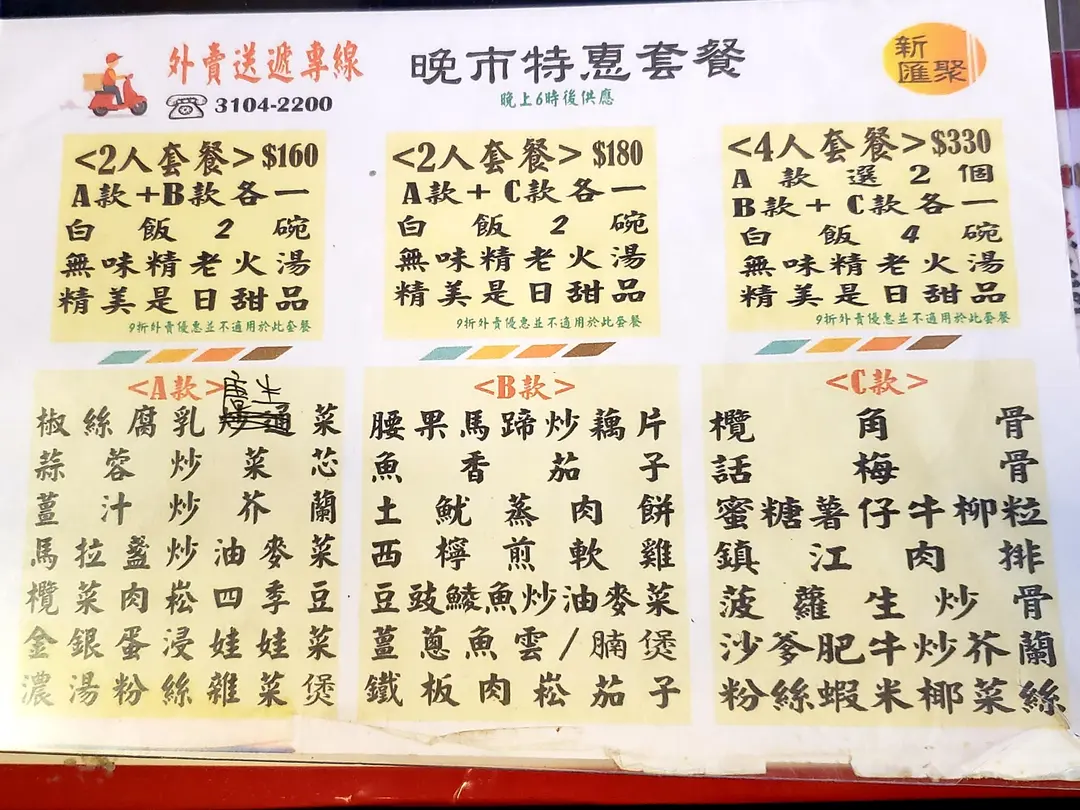 外賣送遞專線
3104-2200
晚市特惠套餐
晚上6時後供應
新
匯聚
<2人套餐>$160
A款+B款各一
白飯2碗
無味精老火湯
精美是日甜品
9折外賣優惠並不適用於此套餐
<2人套餐>$180
A款+C款各一
白飯2碗
無味精老火湯
精美是日甜品
9折外賣優惠並不適用於此套餐
<4人套餐>$330
A款選2個
B款+C款各一
白飯4碗
無味精老火湯
精美是日甜品
9折外賣優惠並不適用於此套餐
<A款>
椒絲腐乳唐生菜
蒜蓉炒菜芯
薑汁炒芥蘭
馬拉盞炒油麥菜
欖菜肉崧四季豆
金銀蛋浸娃娃菜
濃湯粉絲雜菜煲
<B款>
腰果馬蹄炒藕片
魚香茄子
土魷蒸肉餅
西檸煎軟雞
豆豉鯪魚炒油麥菜
薑蔥魚雲/腩煲
鐵板肉崧茄子
<C款>
欖角骨
話梅骨
蜜糖薯仔牛柳粒
鎮江肉排
菠蘿生炒骨
沙爹肥牛炒芥蘭
粉絲蝦米椰菜絲